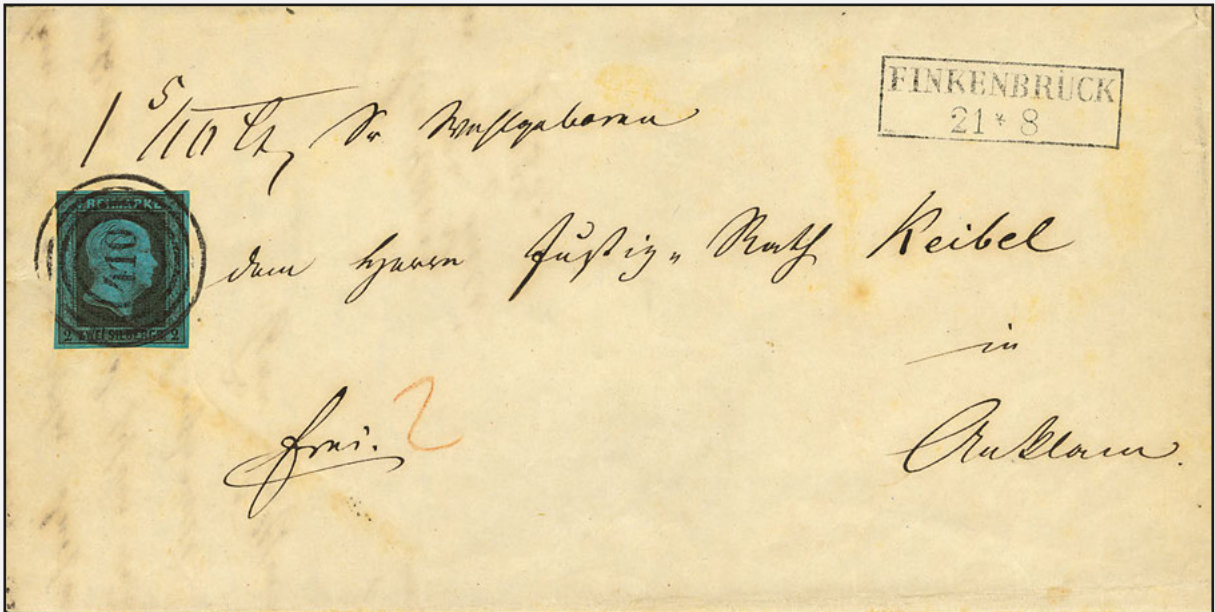 FINKENBRÜCK
21 * 8
1 5/10 Lt, Sr Wohlgeboren
FREIMARKE
410
2 ZWEI SILBERGR. 2
dem Herrn Justiz-Rath Keibel
in
frei. 2
Anklam.